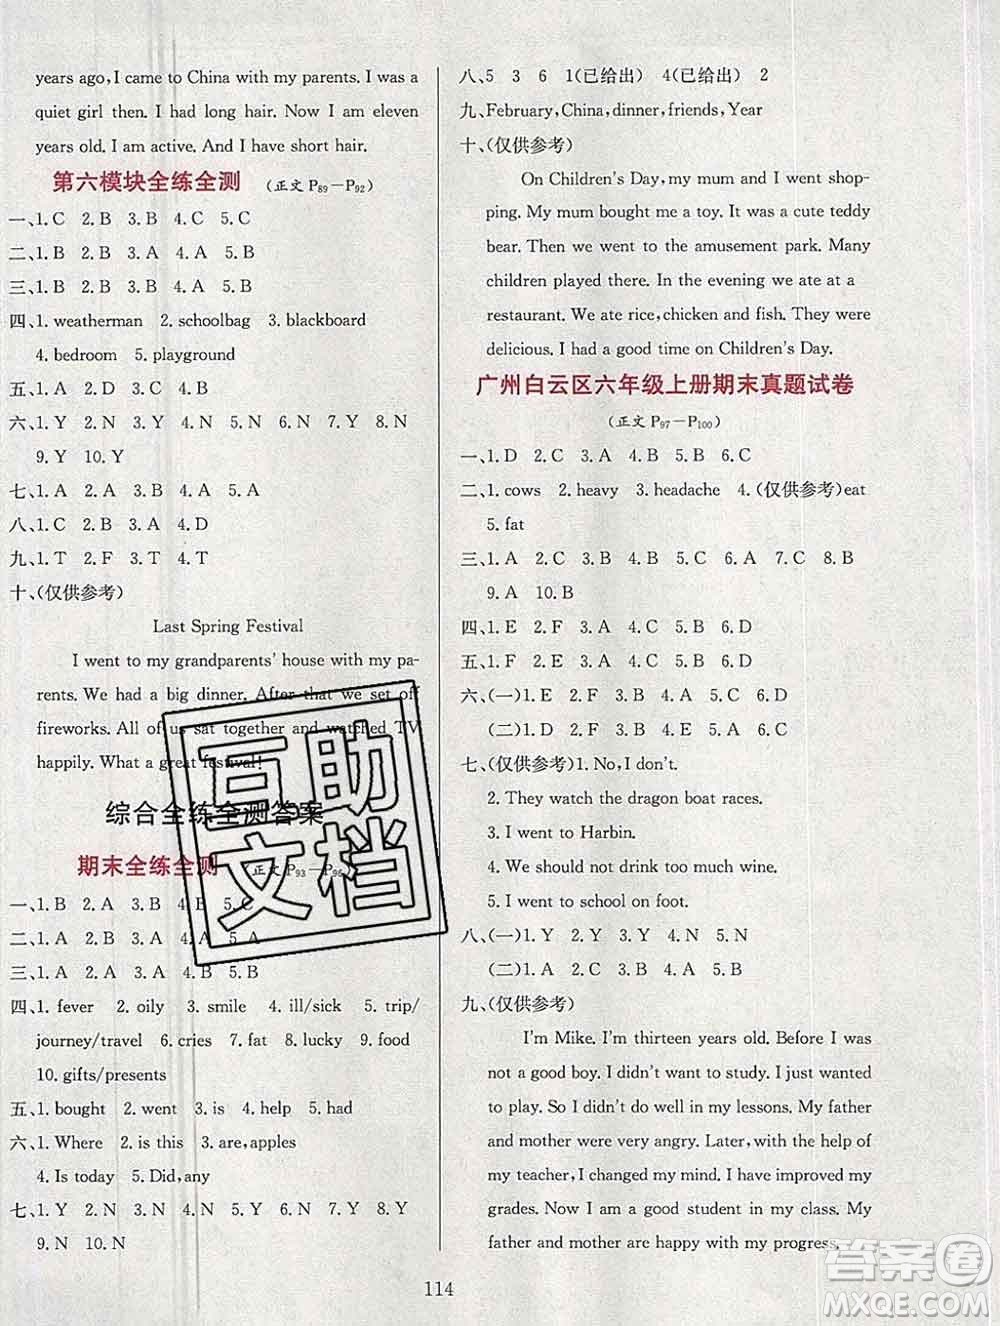 years ago, I came to China with my parents. I was a
quiet girl then. I had long hair. Now I am eleven
years old. I am active. And I have short hair.
第六模块全练全测 (正文 P89－P92)
一、1. C 2. B 3. B 4. C 5. C
二、1. B 2. B 3. A 4. A 5. B
三、1. B 2. B 3. A 4. A 5. B
四、1. weatherman 2. schoolbag 3. blackboard
4. bedroom 5. playground
五、1. A 2. A 3. C 4. B
六、1. Y 2. N 3. Y 4. Y 5. N 6. N 7. Y 8. N
9. Y 10. Y
七、1. A 2. B 3. A 4. B 5. A
八、1. C 2. B 3. A 4. D
九、1. T 2. F 3. F 4. T
十、(仅供参考)
Last Spring Festival
I went to my grandparents' house with my pa-
rents. We had a big dinner. After that we set off
fireworks. All of us sat together and watched TV
happily. What a great festival!
综合全练全测答案
期末全练全测 (正文 P93－P96)
一、1. B 2. A 3. B 4. B 5. C
二、1. A 2. B 3. A 4. A 5. A
三、1. B 2. B 3. A 4. B 5. B
四、1. fever 2. oily 3. smile 4. ill/sick 5. trip/
journey/travel 6. cries 7. fat 8. lucky 9. food
10. gifts/presents
五、1. bought 2. went 3. is 4. help 5. had
六、1. Where 2. is this 3. are, apples
4. Is today 5. Did, any
七、1. Y 2. N 3. Y 4. N 5. Y 6. N 7. Y 8. Y
9. N 10. N
八、5 3 6 1(已给出) 4(已给出) 2
九、February, China, dinner, friends, Year
十、(仅供参考)
On Children's Day, my mum and I went shop-
ping. My mum bought me a toy. It was a cute teddy
bear. Then we went to the amusement park. Many
children played there. In the evening we ate at a
restaurant. We ate rice, chicken and fish. They were
delicious. I had a good time on Children's Day.
广州白云区六年级上册期末真题试卷
(正文 P97－P100)
一、1. D 2. C 3. A 4. B 5. B 6. C
二、1. cows 2. heavy 3. headache 4. (仅供参考)eat
5. fat
三、1. A 2. C 3. B 4. B 5. C 6. A 7. C 8. B
9. A 10. B
四、1. E 2. F 3. A 4. C 5. B 6. D
五、1. F 2. E 3. C 4. A 5. B 6. D
六、(一)1. E 2. F 3. B 4. A 5. C 6. D
(二)1. C 2. B 3. D 4. E 5. A 6. F
七、(仅供参考)1. No, I don't.
2. They watch the dragon boat races.
3. I went to Harbin.
4. We should not drink too much wine.
5. I went to school on foot.
八、(一)1. Y 2. N 3. Y 4. N 5. N
(二)1. A 2. C 3. A 4. B 5. C
九、(仅供参考)
I'm Mike. I'm thirteen years old. Before I was
not a good boy. I didn't want to study. I just wanted
to play. So I didn't do well in my lessons. My father
and mother were very angry. Later, with the help of
my teacher, I changed my mind. I have improved my
grades. Now I am a good student in my class. My
father and mother are happy with my progress.
114
互助文档
答案圈
MXQE.COM